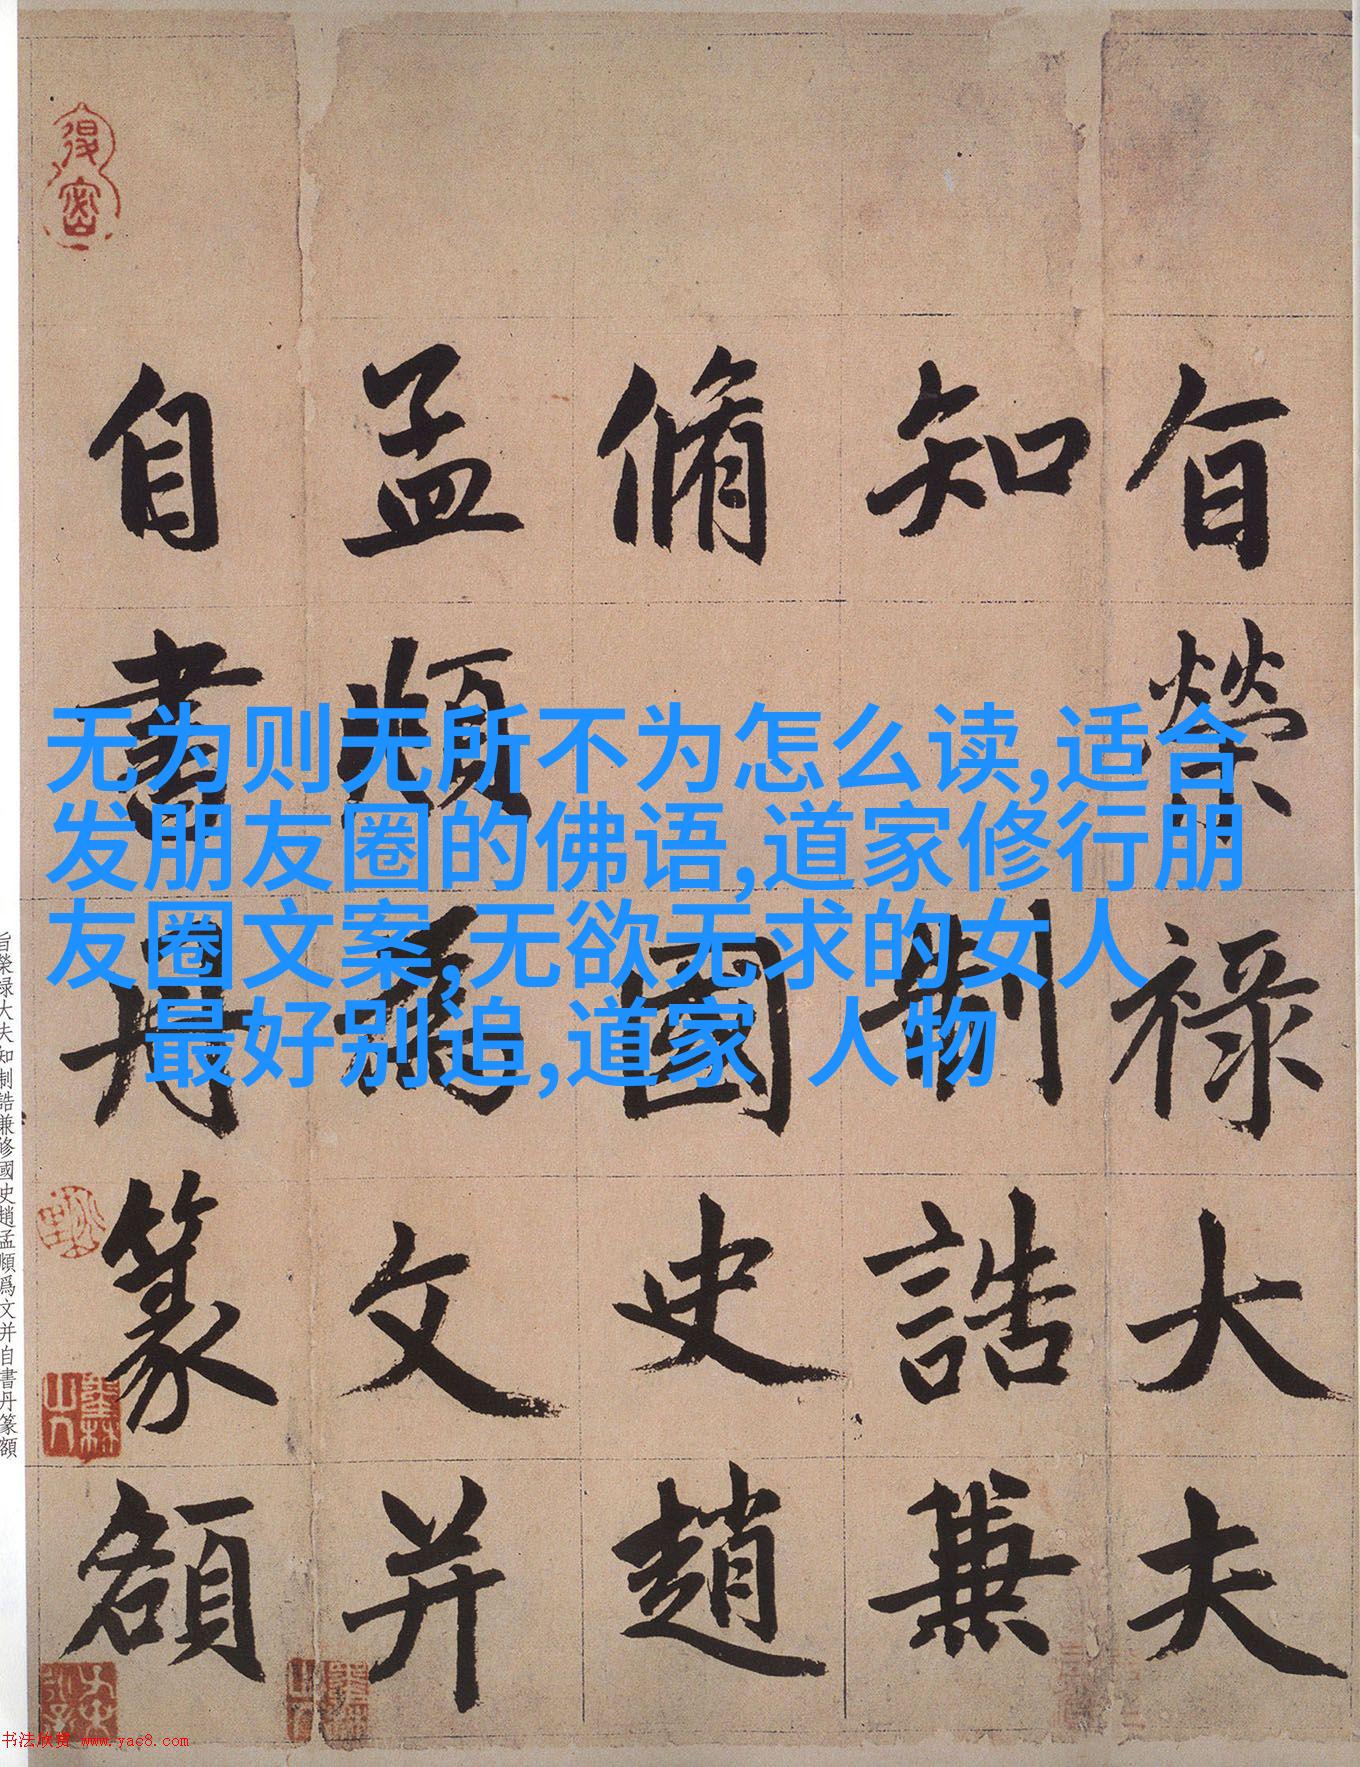 旨榮祿大夫
知制誥兼
脩國史趙
孟頫爲文并
自書丹篆額
无为则无所不为怎么读,适合
发朋友圈的佛语,道家修行朋
友圈文案,无欲无求的女人
最好别追,道家 人物
旨榮祿大夫知制誥兼修國史趙孟頫爲文并自書丹篆額
书法欣赏 www.yac8.com